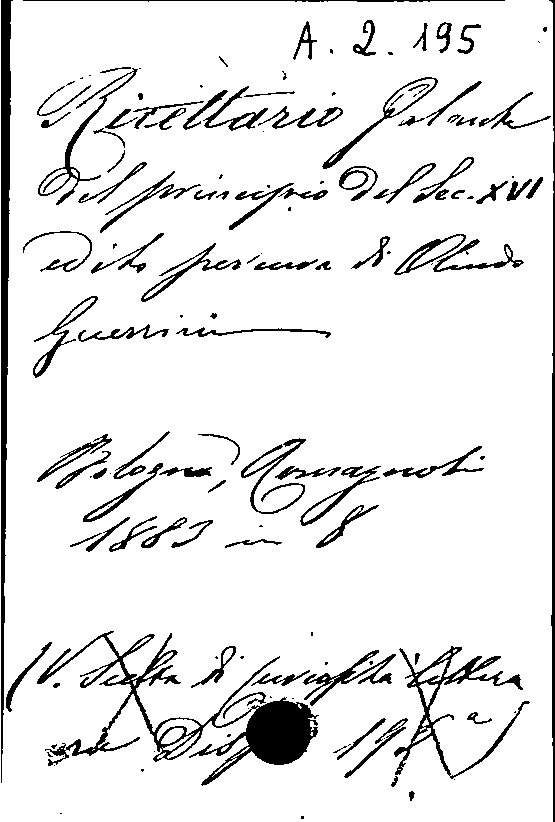 A. 2. 195
Ricettario Galante
del principio del Sec. XVI
edito per cura di Olindo
Guerrini
Bologna, Romagnoli
1883 in 8
(V. Scelta di curiosità lettera
rie Disp 195 a)